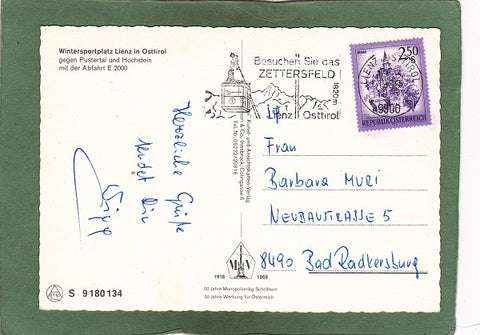 Wintersportplatz Lienz in Osttirol
gegen Pustertal und Hochstein
mit der Abfahrt E 2000
Besuchen Sie das
ZETTERSFELD
1820m
Lienz Osttirol
LIENZ OSTTIROL
9900
2,50
REPUBLIK ÖSTERREICH
Herzliche Grüße
sendet Dir
Kunst- und Ansichtskarten-Verlag
& Co., Innsbruck,
Tel. Nr. 05222/29816
Frau
Barbara MURI
NEUBAUSTRASSE 5
8490 Bad Radkersburg
1918 1968
50 Jahre Monopolverlag Schöllhorn
50 Jahre Werbung für Österreich
S 9180134